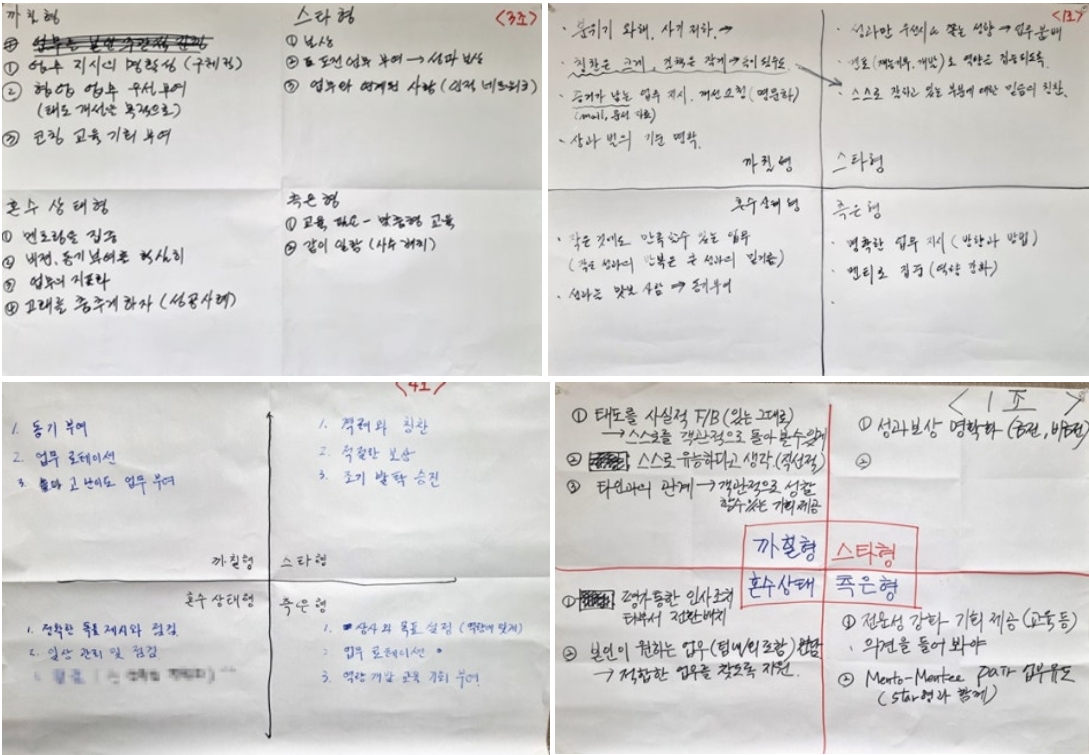 <3조>
까칠형
① 업무 지시의 명확성 (구체적)
② 협업 업무 우선 부여
(태도 개선을 목적으로)
③ 코칭 교육 기회 부여
스타형
① 보상
② 도전 업무 부여 → 성과 보상
③ 업무와 연계된 사람 (인적 네트워크)
혼수 상태형
① 멘토링을 집중
② 비전, 동기부여를 확실히
③ 업무의 지표화
④ 고래를 춤추게 하자 (성공사례)
측은형
① 교육 - 맞춤형 교육
② 같이 일함 (사수 )
· 분위기 와해, 사기 저하 →
· 칭찬은 크게, 견책은 작게 →
· 증거가 남는 업무 지시, 개선요청 (명문화)
(mail, 문서 자료)
· 상과 벌의 기준 명확.
까칠형
· 성과만 우선시 성향 → 업무분배
· 멘토 로 역량을 집중되도록.
· 스스로 잘하고 있는 부분에 대한 믿음의 칭찬.
스타형
혼수상태형
· 작은 것에도 만족할수 있는 업무
(작은 성과의 반복은 큰 성과의 밑거름)
· 성과를 맛본 사람 → 동기부여
측은형
· 명확한 업무 지시 (방향과 방법)
· 멘티로 집중 (역량 강화)
·
<4조>
1. 동기 부여
2. 업무 로테이션
3. 고 난이도 업무 부여
까칠형
1. 격려와 칭찬
2. 적절한 보상
3. 조기 발탁 승진
스타형
혼수상태형
1. 정확한 목표 제시와 점검
2. 일상 관리 및 점검
측은형
1. 상사와 목표 설정 (역량에 맞게)
2. 업무 로테이션
3. 역량 개발 교육 기회 부여.
<1조>
① 태도를 사실적 F/B (있는 그대로)
→ 스스로를 객관적으로 돌아 볼수있게
② 스스로 유능하다고 생각 (직선적)
③ 타인과의 관계 → 객관적으로 성찰
할수있는 기회 제공
까칠형
① 성과보상 명확화 (금전, 비금전)
②
스타형
혼수상태
① 평가 통한 인사조치
타부서 전환배치
② 본인이 원하는 업무 (팀내/외 포함)
→ 적합한 업무를 찾도록 지원.
측은형
① 전문성 강화 기회 제공 (교육등)
· 의견을 들어 봐야
② Mento-Mentee pair 업무유도
(star형과 함께)